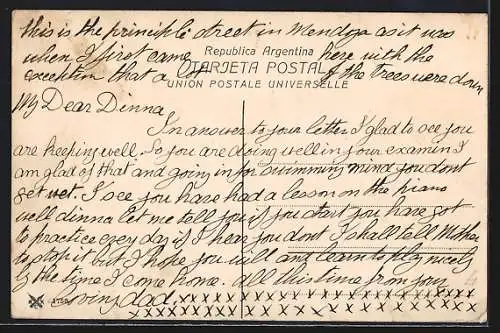 this is the principle street in Mendoza as it was
when I first came here with the
Republica Argentina
exception that a lot of the trees were down
TARJETA POSTAL
UNION POSTALE UNIVERSELLE
My Dear Dinna
In answer to your letter I glad to see you
are keeping well. So you are doing well in your examin I
am glad of that and going in for swimming mind you dont
get wet. I see you have had a lesson on the piano
well dinna let me tell you if you start you have got
to practice every day if I hear you dont I shall tell Mother
to stop it but I hope you will and learn to play nicely
by the time I come home. all this time from your
loving dad. xxxxxxxxxxxxxxxxx
xxxxxxxxxxxxxxxxxxxx